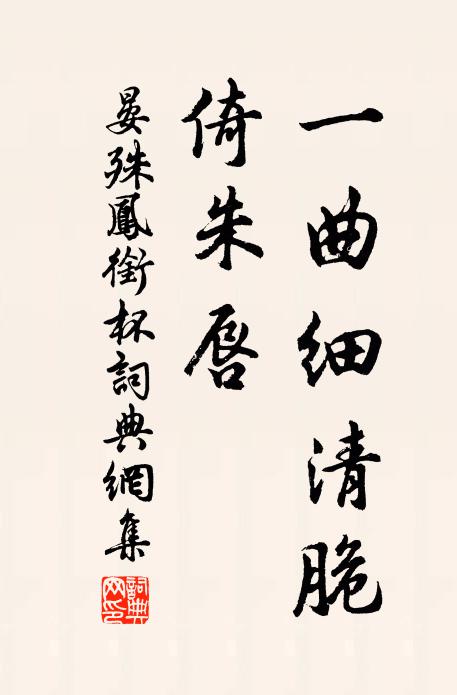 一曲細清脆
倚朱唇
晏殊鳳銜杯詞典網集
詞典网印